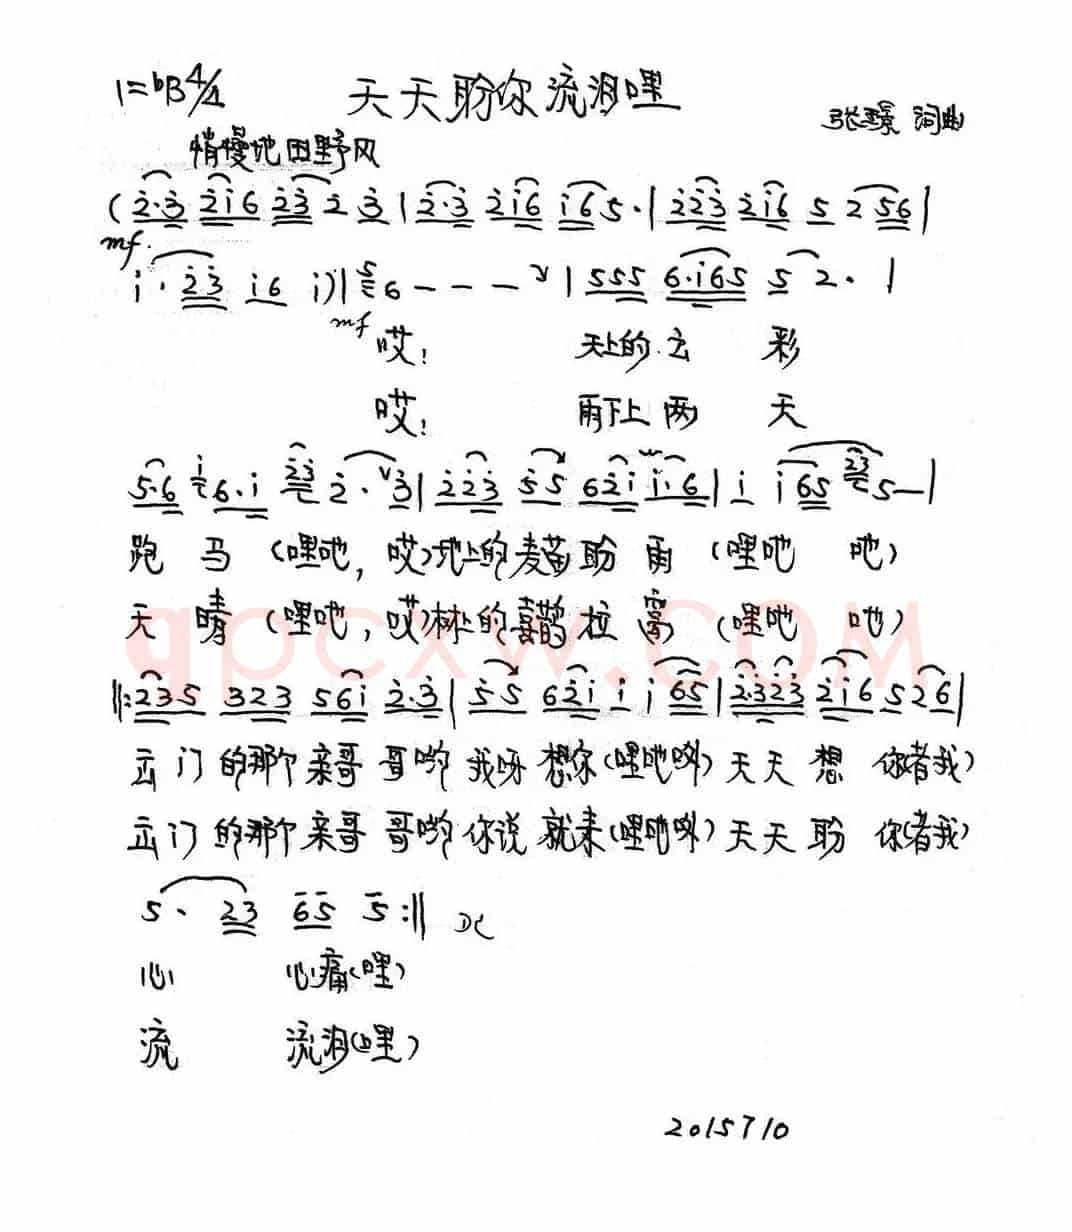 1=♭B 4/4 天天盼你流泪哩
张璟 词曲
稍慢地田野风
(2̇·3̇ 2̇i6 2̇3̇ 2̇ 3̇|2̇·3̇ 2̇i6 i65·|2̇2̇3̇ 2̇i6 5 2 56|
mf.
i· 2̇3̇ i6 i)|5 6 - - - ∨|555 6·i65 5 2·|
mf
哎! 天上的云 彩
哎! 雨下上两 天
5·6 i 6·i 2̇3̇ 2̇· ∨3̇|2̇2̇3̇ 55 62̇i i·6|i i65 2̇3̇ 5—|
跑马(哩吔,哎)地上的麦苗盼雨(哩吔 吔)
天晴(哩吔,哎)林上的喜鹊拉窝(哩吔 吔)
‖:2̇35 323 56i 2̇·3̇|55 62̇i i i65|2̇·32̇3 2̇i6 526|
立门的那个亲哥哥哟我呀想你(哩吔吔)天天想 你(者我)
立门的那个亲哥哥哟你说就来(哩吔吔)天天盼 你(者我)
5· 23 65 5:‖ DC
心 心痛(哩)
流 流泪(哩)
2015 7 10
gpcxw.COM